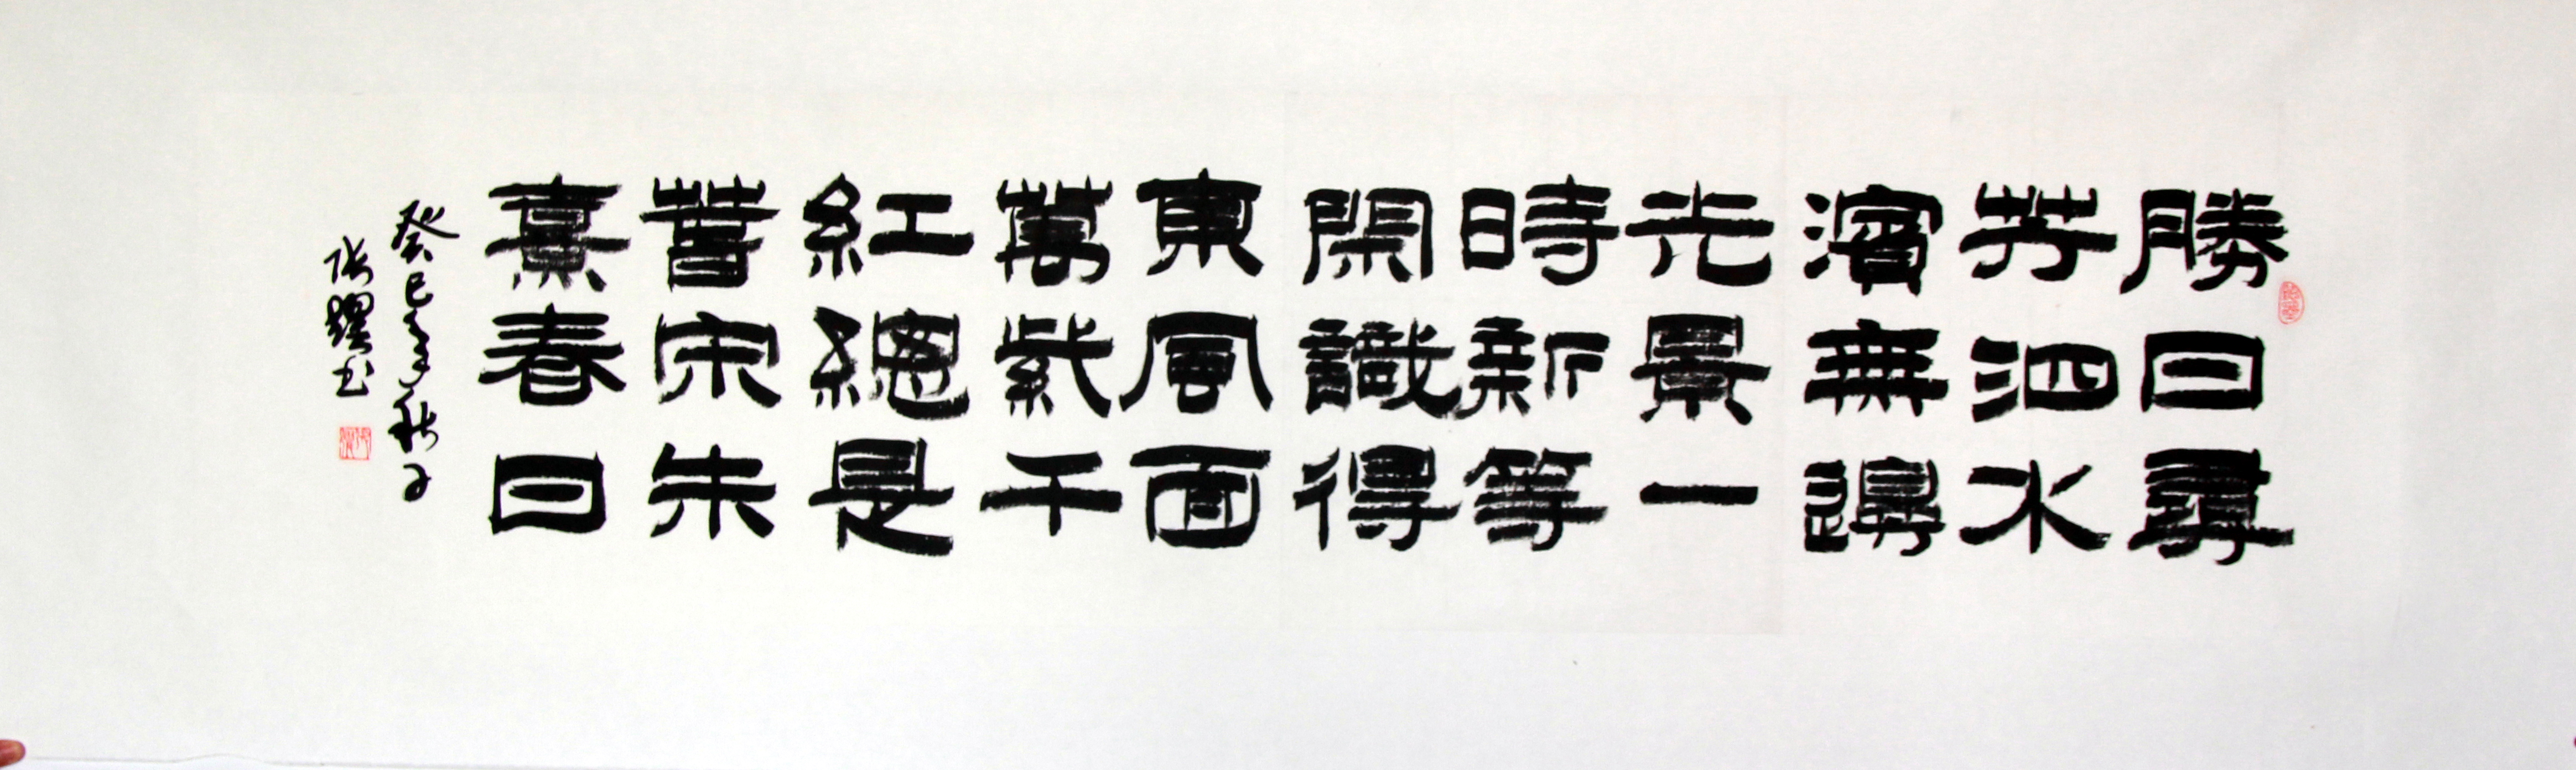 勝日尋
芳泗水
濱無邊
光景一
時新等
閑識得
東風面
萬紫千
紅總是
春宋朱
熹春日
癸巳年秋
張躍书